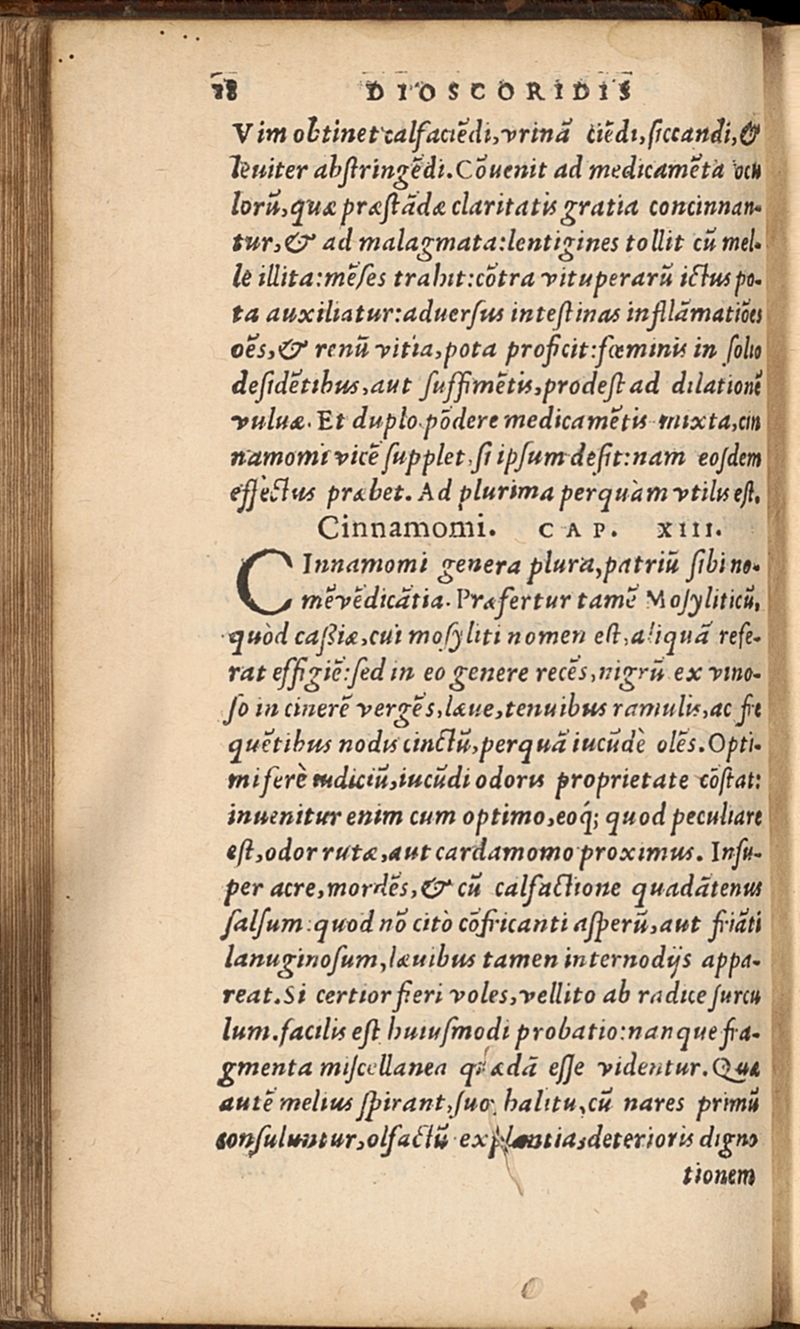 18 DIOSCORIDIS
Vim obtinet calfaciẽdi, vrinã ciẽdi, siccandi, &
leuiter abstringẽdi. Cõuenit ad medicamẽta ocu
lorũ, quæ præstãdæ claritatis gratia concinnan-
tur, & ad malagmata: lentigines tollit cũ mel-
le illita: mẽses trahit: cõtra vituperarũ ictus po-
ta auxiliatur: aduersus intestinas inflãmatiões
oẽs, & renũ vitia, pota proficit: fœminis in solio
desidẽtibus, aut suffimẽtis, prodest ad dilationẽ
vuluæ. Et duplo põdere medicamẽtis mixta, cin
namomi vicẽ supplet, si ipsum desit: nam eosdem
effectus præbet. Ad plurima perquàm vtilis est.
Cinnamomi. CAP. XIII.
CInnamomi genera plura, patriũ sibi no-
mẽ vẽdicãtia. Præfertur tamẽ Mosyliticũ,
quòd cassiæ, cui mosyliti nomen est, aliquã refe-
rat effigiẽ: sed in eo genere recẽs, nigrũ ex vino-
so in cinerẽ vergẽs, læue, tenuibus ramulis, ac fre
quẽtibus nodis cinctũ, perquã iucũdè olẽs. Opti-
mi ferè iudiciũ, iucũdi odoris proprietate cõstat:
inuenitur enim cum optimo, eoq́; quod peculiare
est, odor rutæ, aut cardamomo proximus. Insu-
per acre, mordẽs, & cũ calfactione quadãtenus
salsum: quod nõ citò cõfricanti asperũ, aut friãti
lanuginosum, læuibus tamen internodijs appa-
reat. Si certior fieri voles, vellito ab radice surcu
lum. facilis est huiusmodi probatio: nanque fra-
gmenta miscellanea quædã esse videntur. Quæ
autẽ melius spirant, suo halitu, cũ nares primũ
consuluntur, olfactũ explentia, deterioris digno
tionem